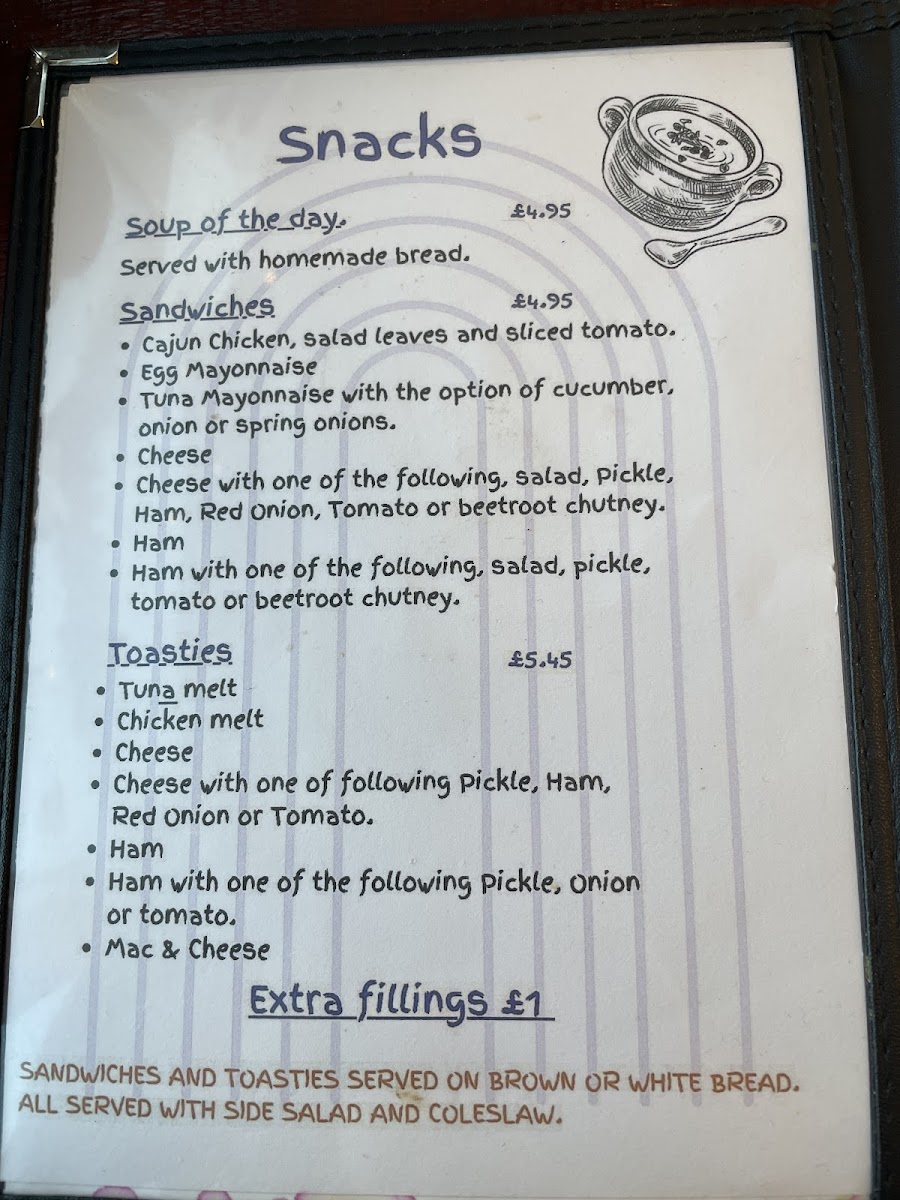 Snacks
Soup of the day. £4.95
Served with homemade bread.
Sandwiches £4.95
• Cajun Chicken, salad leaves and sliced tomato.
• Egg Mayonnaise
• Tuna Mayonnaise with the option of cucumber,
onion or spring onions.
• Cheese
• Cheese with one of the following, salad, Pickle,
Ham, Red Onion, Tomato or beetroot chutney.
• Ham
• Ham with one of the following, salad, pickle,
tomato or beetroot chutney.
Toasties £5.45
• Tuna melt
• Chicken melt
• Cheese
• Cheese with one of following Pickle, Ham,
Red Onion or Tomato.
• Ham
• Ham with one of the following Pickle, Onion
or tomato.
• Mac & Cheese
Extra fillings £1
SANDWICHES AND TOASTIES SERVED ON BROWN OR WHITE BREAD.
ALL SERVED WITH SIDE SALAD AND COLESLAW.